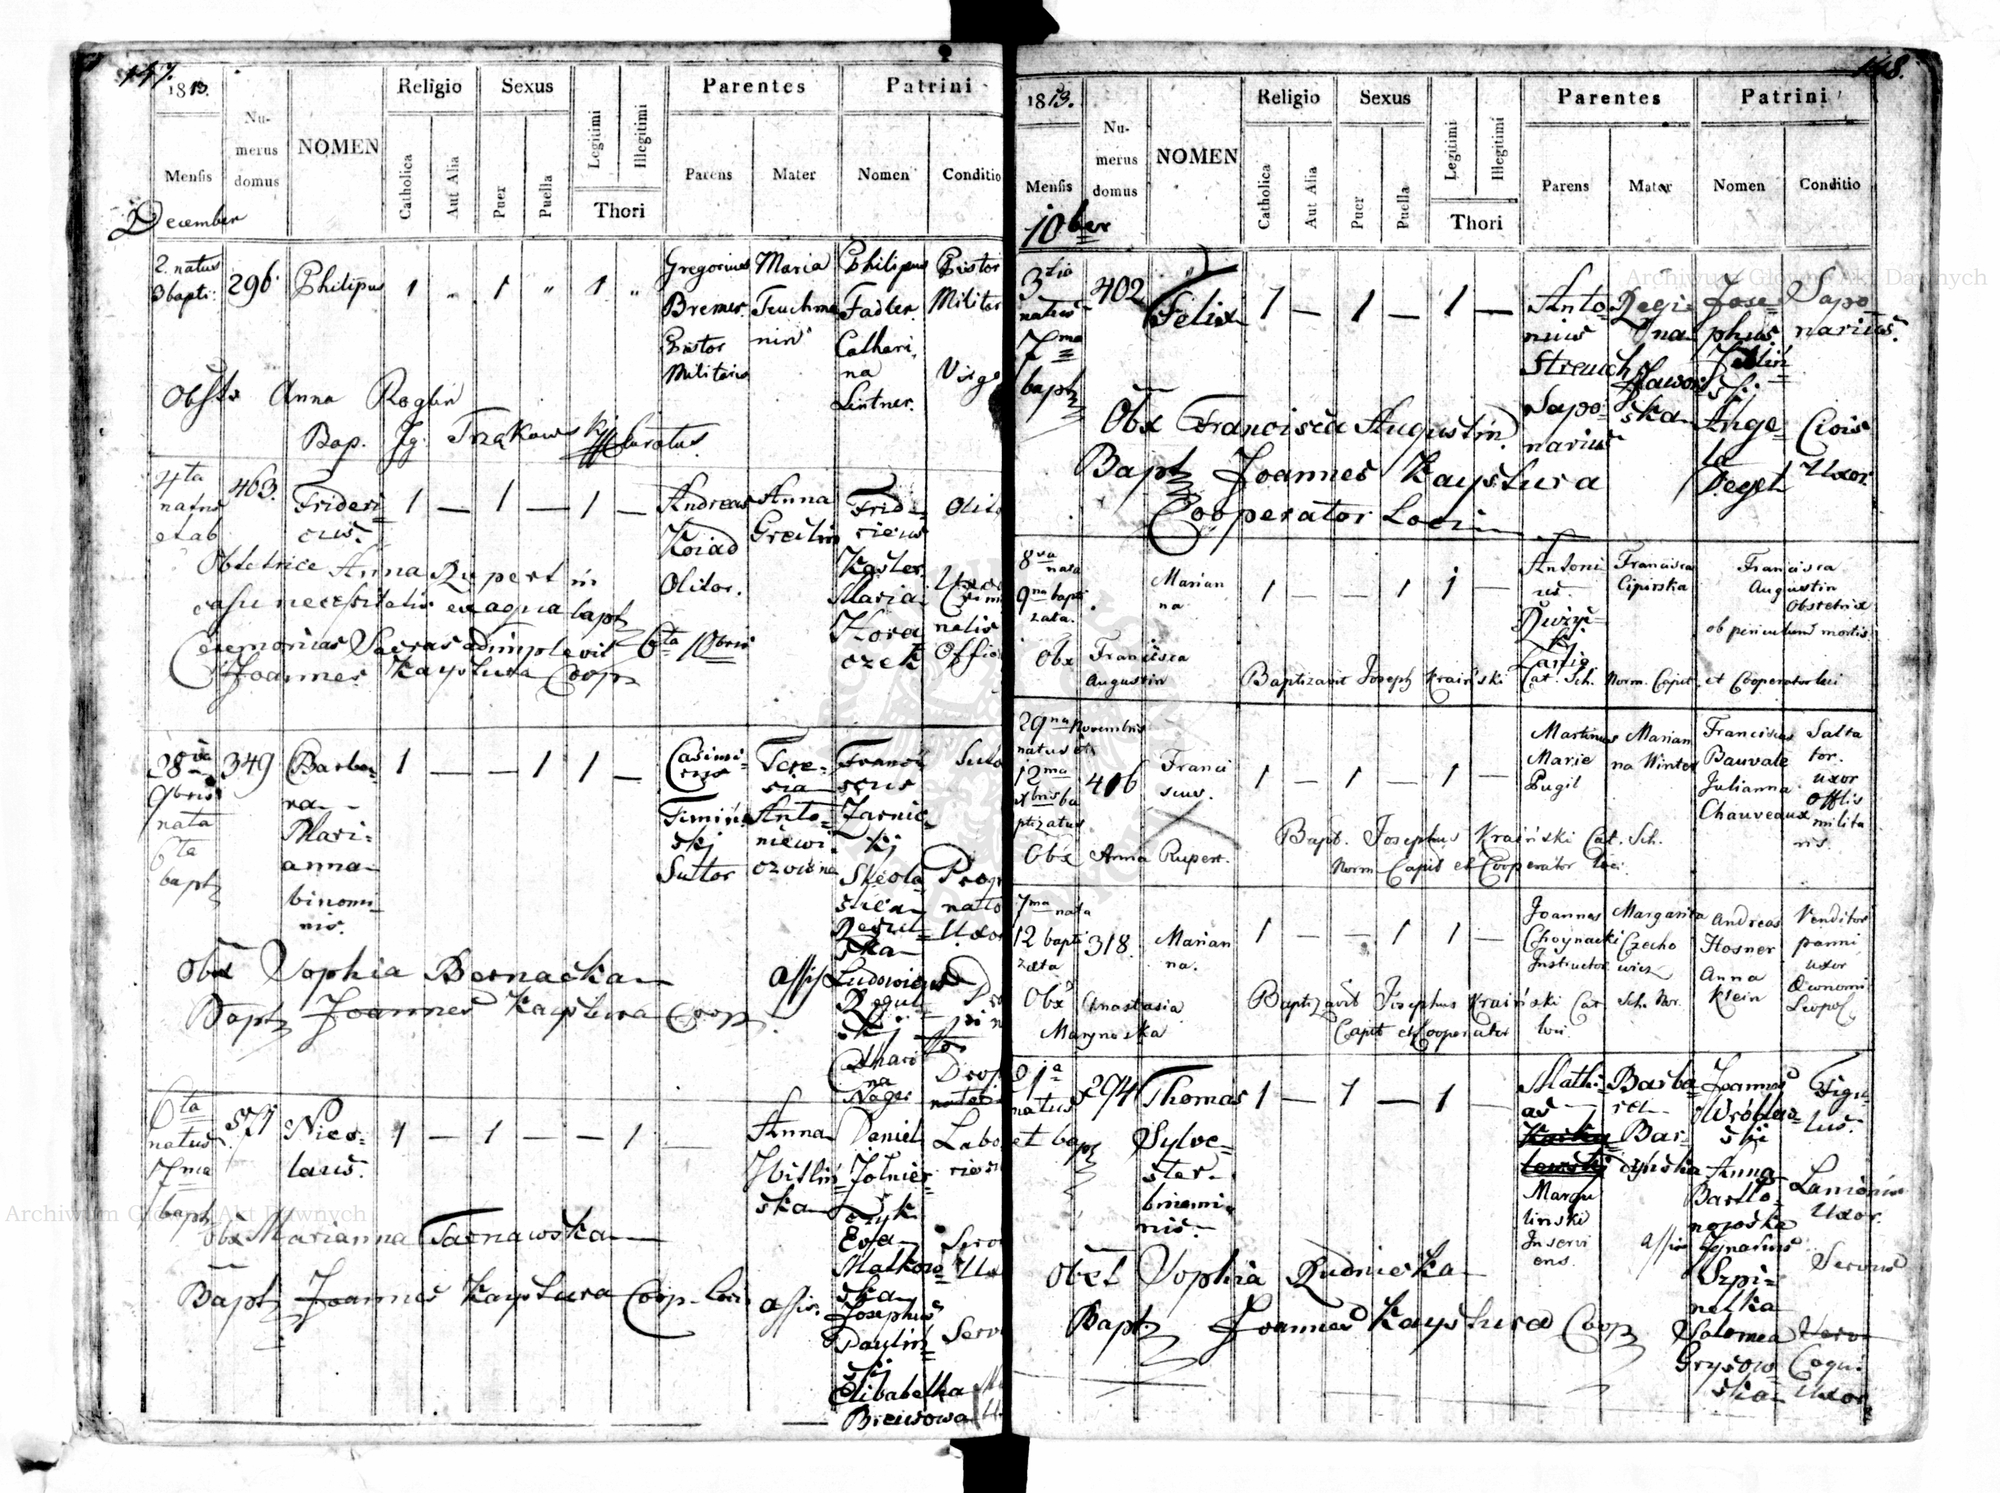 147.
1813.
Mensis
Numerus domus
NOMEN
Religio
Catholica
Aut Alia
Sexus
Puer
Puella
Legitimi
Illegitimi
Thori
Parentes
Parens
Mater
Patrini
Nomen
Conditio
December
2. natus
3 bapti:
296.
Philipus
1 " 1 " 1 "
Gregorius
Bremer
Pistor
Militaris
Maria
Philipus
Fadler.
Cathari,
na
Lintner.
Pistor
Militar
Virgo
Obstx Anna Roglin
Bap. Ig. Curatus.
4ta
natus
et ab
463.
Frideri=
cus.
1 — 1 — 1 —
Andreas
Koiad
Olitor.
Anna
Greilin
Fride=
ricus
Kaster.
Maria
Hora=
czek
Olito
Obstetrice Anna Rupertin
casu necessitatis ex aqua bapt
Ceremonias Sacras adimplevit 6ta Xbris
Joannes Kaystura Coop
28va
9bris
nata
6ta
bapt
349
Barba=
ra
Mari=
anna
binomi=
nis.
1 — — 1 1 —
Casimi=
rus
Simiń=
ski
Suttor
Tere=
sia
Anto=
niewi=
czowna
Franci
scus
Zarnic=
ki
Skola=
stica
Regul=
ska
Suto
Uxor
Obx Sophia Bernacka
assis Ludovicus
Regul=
ski
Cathari
na
Nager
Bapt Joannes Kaystura Coop.
6ta
natus
7ma
bapt
571
Nico=
laus.
1 — 1 — — 1 —
Anna
Daniel
Zolnier=
czyk
Eva
Malkow=
ska
Josephus
Paulin=
ski
Elisabetha
Labo
Servu
Obx Marianna Tarnawska
Bapt Joannes Kaystura Coop. loci
assis.
148.
1813.
Mensis
Numerus domus
NOMEN
Religio
Catholica
Aut Alia
Sexus
Puer
Puella
Legitimi
Illegitimi
Thori
Parentes
Parens
Mater
Patrini
Nomen
Conditio
10ber
3tia
natus
7ma
bapt
402
Felix
1 — 1 — 1 —
Anto=
nius
Streuch
Sapo=
narius
Regi=
na
Jawor
ska
Jose=
phus
Ange=
la
Deget
Sapo
narius.
Civis
Uxor
Obx Francisca Augustin
Bapt Joannes Kaystura
Cooperator Loci
8va
nata
9na bapti
zata.
Marian
na.
1 — — 1 1 —
Antoni
us.
Francisca
Cipirska
Francisca
Augustin
Obstetrix
ob periculum mortis
Obx Francisca
Augustin
Baptizavit Joseph Kraiński Cat. Sch. Norm. Caput. et Cooperator loci
29na Novembris
natus et
12ma
Xbris ba
ptizatus
406
Franci
scus.
1 — 1 — 1 —
Martinus
Marie
Pugil
Marian
na Winter
Franciscus
Bauvale
Julianna
Chauveaux
Salta
tor.
uxor
Offlis
milita
ris.
Obx Anna Rupert.
Bapt. Josephus Kraiński Cat. Sch.
Norm. Caput et Cooperator loci.
7ma nata
12 bapti
zata
318.
Marian
na.
1 — — 1 1 —
Joannes
Choynacki
Instructor
Margarita
Czecho
wicz
Andreas
Hosner
Anna
Klein
Venditor
panni
uxor
Œconomi
Leopol.
Obx Anastasia
Marynoska
Baptizavit Josephus Kraiński Cat Sch. Nor.
Caput et Cooperator loci
natus
et bapt
294
Thomas
Sylve=
ster
binomi=
nis.
1 — 1 — 1 —
Mathi=
as
Margu
linski
Inservi
ens.
Barba
ra
Joannes
Wróblew
ski
Anna
Bartlo=
nojoska
Figu=
lus.
Lanionis
Uxor.
assis Ignatius
Szpi=
netka
Salomea
Gryſow=
ska
Servus
Coqui
Uxor
Obst Sophia Rudnicka
Bapt Joannes Kaystura Coop
Archiwum Główne Akt Dawnych
Archiwum Główne Akt Dawnych